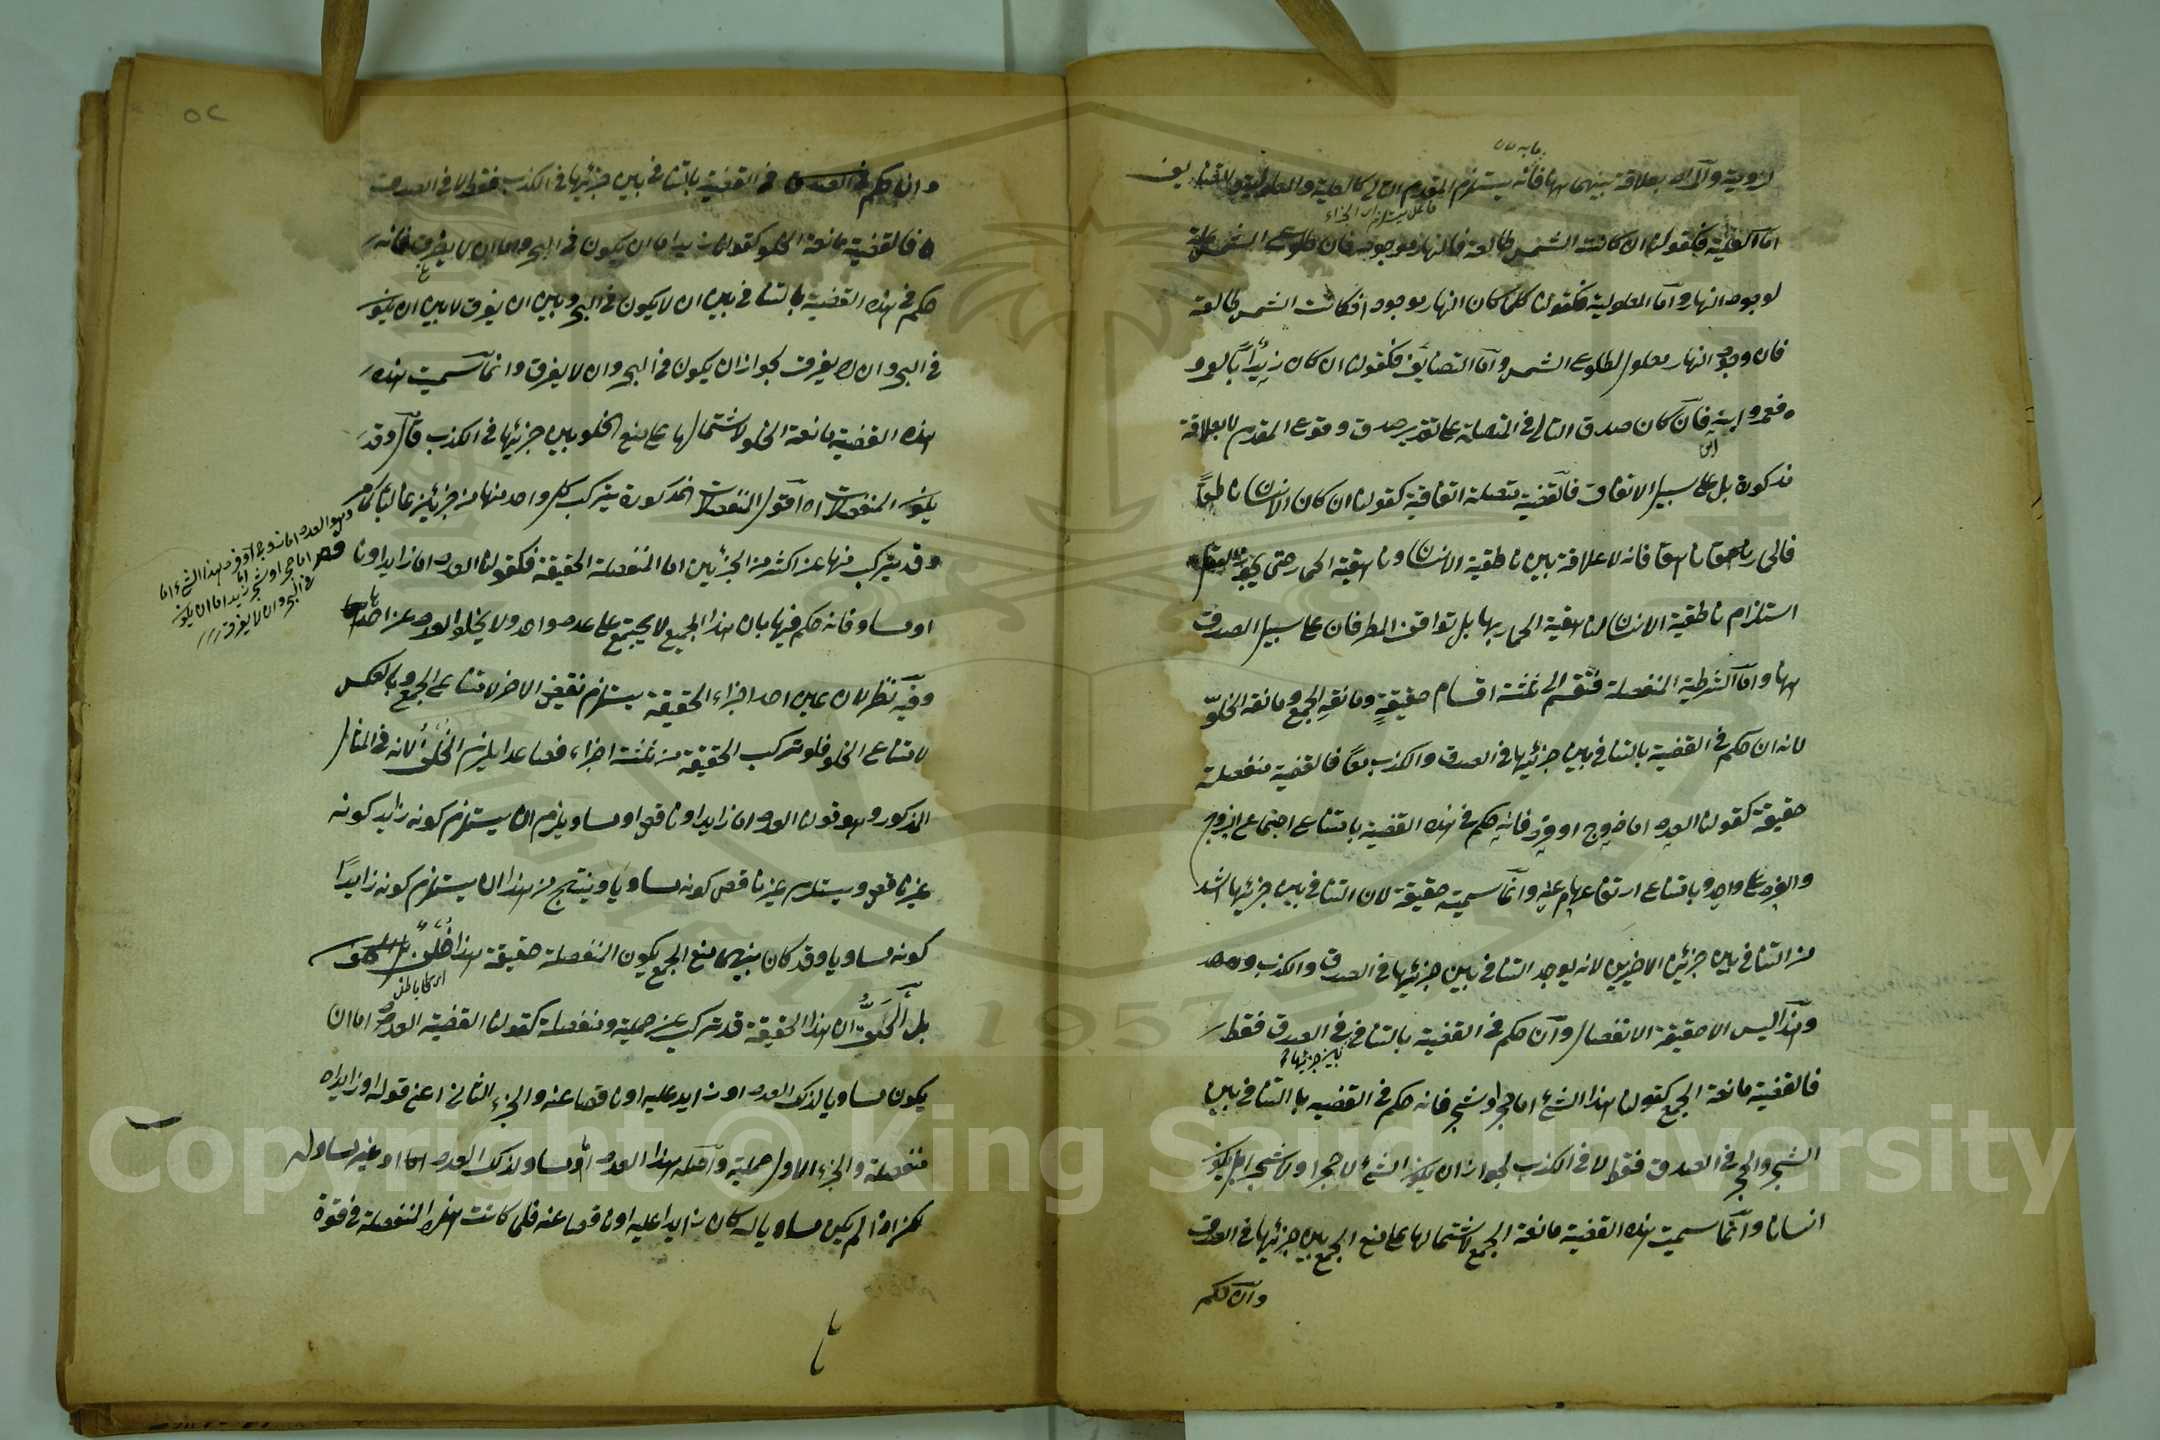 لزومية والا لا بعلاقة بينهما فانه يستلزم المقدم التالي كالعلية والمعلولية والتضايف
اما العلية فكقولنا ان كانت الشمس طالعة فالنهار موجود فان طلوع الشمس علة
لوجود النهار واما المعلولية فكقولنا كلما كان النهار موجودا فكانت الشمس طالعة
فان وجود النهار معلول لطلوع الشمس واما التضايف فكقولنا ان كان زيد ابا لعمرو
فعمرو ابنه فان كان صدق التالي في المتصلة على تقدير صدق وقوع المقدم لا بعلاقة
مذكورة بل على سبيل الاتفاق فالقضية متصلة اتفاقية كقولنا ان كان الانسان ناطقا
فالحمار ناهقا فانه لا علاقة بين ناطقية الانسان وناهقية الحمار حتى يجوز العقل
استلزام ناطقية الانسان لناهقية الحمار بها بل توافق الطرفان على سبيل الصدق
ههنا واما الشرطية المنفصلة فتنقسم الى ثلثة اقسام حقيقية ومانعة الجمع ومانعة الخلو
لانه ان حكم في القضية بالتنافي بين جزئيها في الصدق والكذب معا فالقضية منفصلة
حقيقية كقولنا العدد اما زوج او فرد فانه حكم في هذه القضية بامتناع اجتماع الزوج
والفرد على واحد وبامتناع ارتفاعهما عنه وانما سميت حقيقة لان التنافي بين جزئيها اشد
من التنافي بين جزئي الاخريين لانه يوجد التنافي بين جزئيها في الصدق والكذب
وهذا ليس الا حقيقة الانفصال وان حكم في القضية بالتنافي في الصدق فقط
بين جزئيها
فالقضية مانعة الجمع كقولنا هذا الشئ اما حجر او شجر فانه حكم في القضية بالتنافي بين
الشجر والحجر في الصدق فقط لا في الكذب لجواز ان يكون الشئ لا حجرا ولا شجرا بل يكون
انسانا وانما سميت هذه القضية مانعة الجمع لاشتمالها على منع الجمع بين جزئيها في الصدق
وان حكم
٥٢
وان حكم في القضية بالتنافي بين جزئيها في الكذب فقط لا في الصدق
فالقضية مانعة الخلو كقولنا زيد اما ان يكون في البحر واما ان لا يغرق فانه
حكم في هذه القضية بالتنافي بين ان لا يكون في البحر وبين ان يغرق لا بين ان يكون
في البحر وان لا يغرق لجواز ان يكون في البحر وان لا يغرق وانما سميت هذه
هذه القضية مانعة الخلو لاشتمالها على منع الخلو بين جزئيها في الكذب قال وقد
يكون المنفصلات اه اقول المنفصلات المذكورة يتركب كل واحد منها من جزئين غالبا كما مر
وهو العدد اما زوج او فرد وهذا الشئ اما
اما حجر او شجر وزيد اما ان يكون
في البحر وان لا يغرق
وقد يتركب منها عن اكثر من الجزئين اما المنفصلة الحقيقة فكقولنا العدد اما زايد او نا
قص
او مساو فانه حكم فيها بان هذا الجميع لا يجتمع على عدد واحد ولا يخلو العدد عن احدها
وفيه نظر لان عين احد اجزاء الحقيقة يستلزم نقيض الاخر لامتناع الجمع وبالعكس
لامتناع الخلو فلو تركب الحقيقة من ثلثة اجزاء فصاعدا يلزم الخلف لانه في المثال
المذكور وهو قولنا العدد اما زايد او ناقص او مساو يلزم ان يستلزم كونه زايد كونه
غير ناقص ويستلزم غير ناقص كونه مساويا وينتج من هذا ان يستلزم كونه زايدا
كونه مساويا وقد كان بينهما منع الجمع يكون المنفصلة حقيقة هذا خلف
اى كلام باطل
بل الحق ان هذا الحقيقة قد تركب عن حملية ومنفصلة كقولنا القضية العدد اما ان
يكون مساويا لذلك العدد او زايد عليه او ناقصا عنه والجزء الثاني اعني قوله او زايدا
منفصلة والجزء الاول حملية واصله هذا العدد اما مساو لذلك العدد اما او غير مساو له
لكن اذا لم يكن مساويا له كان زايدا عليه او ناقصا عنه فلما كانت هذه المنفصلة في قوة